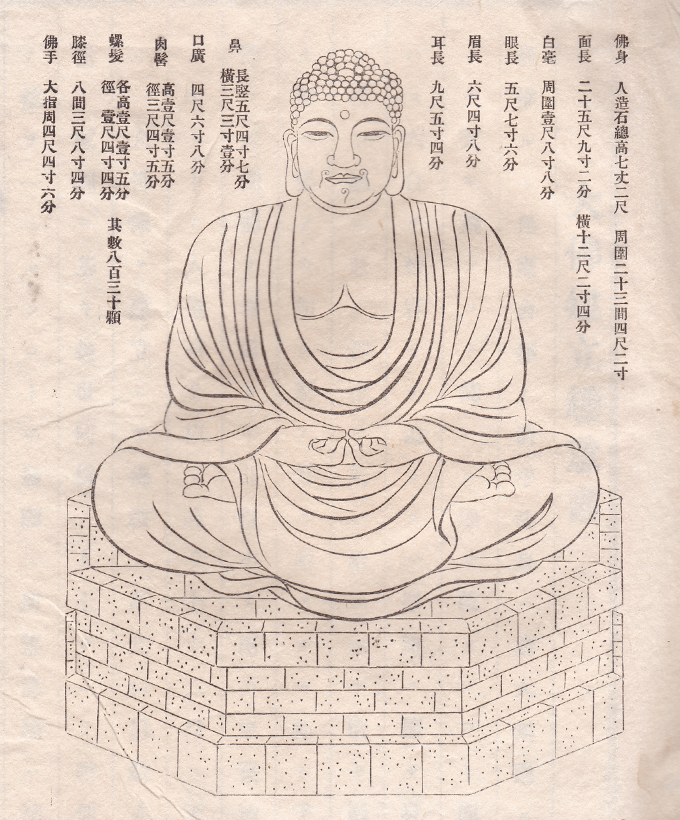 佛身 人造石總高七丈二尺 周圍二十三間四尺二寸
面長 二十五尺九寸二分 橫十二尺二寸四分
白毫 周圍壹尺八寸八分
眼長 五尺七寸六分
眉長 六尺四寸八分
耳長 九尺五寸四分
鼻 長竪五尺四寸七分
橫三尺三寸壹分
口廣 四尺六寸八分
肉髻 高壹尺壹寸五分
徑三尺四寸五分
螺髮 各高壹尺壹寸五分
徑壹尺四寸四分 其數八百三十顆
膝徑 八間三尺八寸四分
佛手 大指周四尺四寸六分